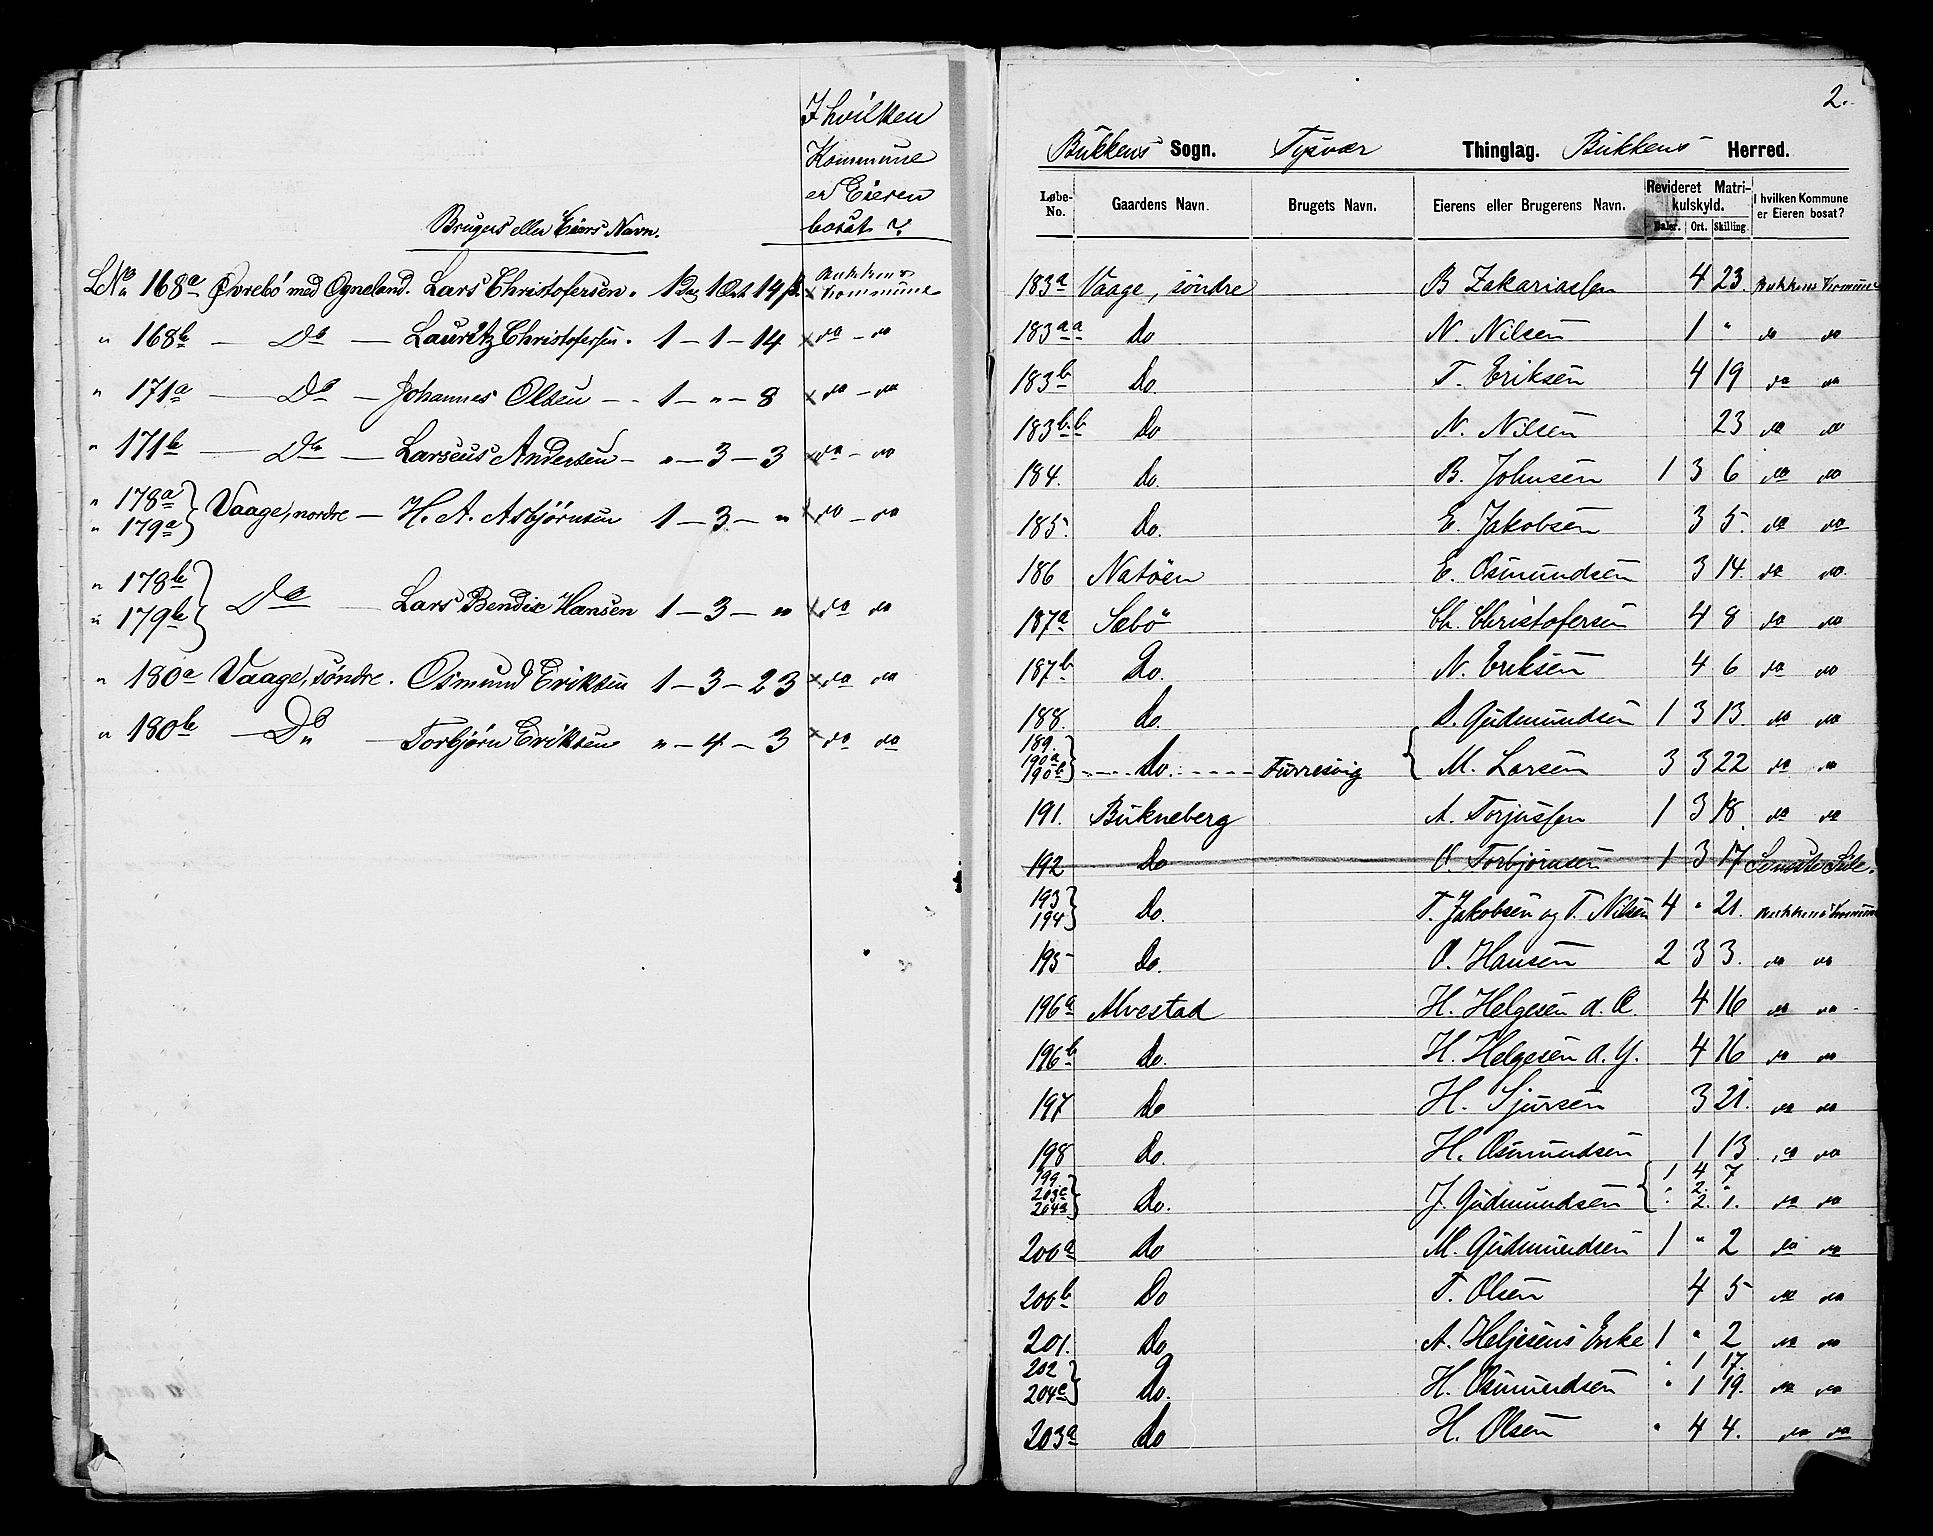 I hvilken
Kommune
er Eieren
bosat ?
Brugers eller Eiers Navn.
LNo 168a Øvrebö med Ogneland. Lars Christofersen. 1 Dlr 1 Ort 14 β. x Bukkens Kommune
" 168b — Do — Lauritz Christofersen. 1 — 1 — 14 x do — do
" 171a — Do — Johannes Olsen — 1 — " — 8 x do — do
" 171b — Do — Larseus Andersen — " — 3 — 3 x do — do
" 178a
" 179a } Vaage, nordre — H. A. Asbjörnsen 1 — 3 — " x do — do
" 178b
" 179b } Do — Lars Bendix Hansen 1 — 3 — " x do do
" 180a Vaage, söndre. Osmund Eriksen 1 — 3 — 23 x do do
" 180b — Do — Torbjørn Eriksen " — 4 — 3 x do do
2.
Bukkens Sogn. Tysvær Thinglag. Bukkens Herred.
Løbe-No. Gaardens Navn. Brugets Navn. Eierens eller Brugerens Navn. Revideret Matrikulskyld. Daler. Ort. Skilling. I hvilken Kommune er Eieren bosat?
183a Vaage, söndre B Zakariassen 4 23. Bukkens Kommune
183aa Do N. Nilsen 1 " do do
183b Do. T. Eriksen 4 19 do do
183bb Do N. Nilsen 23 do do
184. Do. B. Johnsen 1 3 6 do do
185. Do. E. Jakobsen 3 5. do do
186 Natöen E. Osmundsen 3 14. do do.
187a Sæbö Ch. Christofersen 4 8 do do
187b Do. N. Eriksen 4 6 do do
188. Do. D. Gudmundsen 1 3 13. do do
189.
190a
190b } Do. Turresvig { M. Larsen 3 3 22 do do
191. Bukneberg A. Torjussen 1 3 18. do do
192 Do O. Torbjörnsen 1 3 17
193
194 } Do. T. Jakobsen og T. Nilsen 4 " 21. Bukkens Kommune
195 Do. O. Hansen 2 3 3. do do
196a Alvestad H. Helgesen d. Æ. 4 16 do do
196b Do. H. Helgesen d. Y. 4 16 do do
197 Do H. Sjursen 3 21. do do
198 Do. H. Osmundsen 1 13 do do
199. 1 4 7
203c " 2. "
204a } Do. J. Gudmundsen { " 2. 1. do do
200a Do M. Gudmundsen 1 " 2 do do
200b Do T. Olsen 4 5 do do
201. Do A. Heljesens Enke 1 " 2 do do
202 " 1 17.
204c } Do. H. Osmundsen " 1 19. do do
203a Do H. Olsen " 4 4. do do